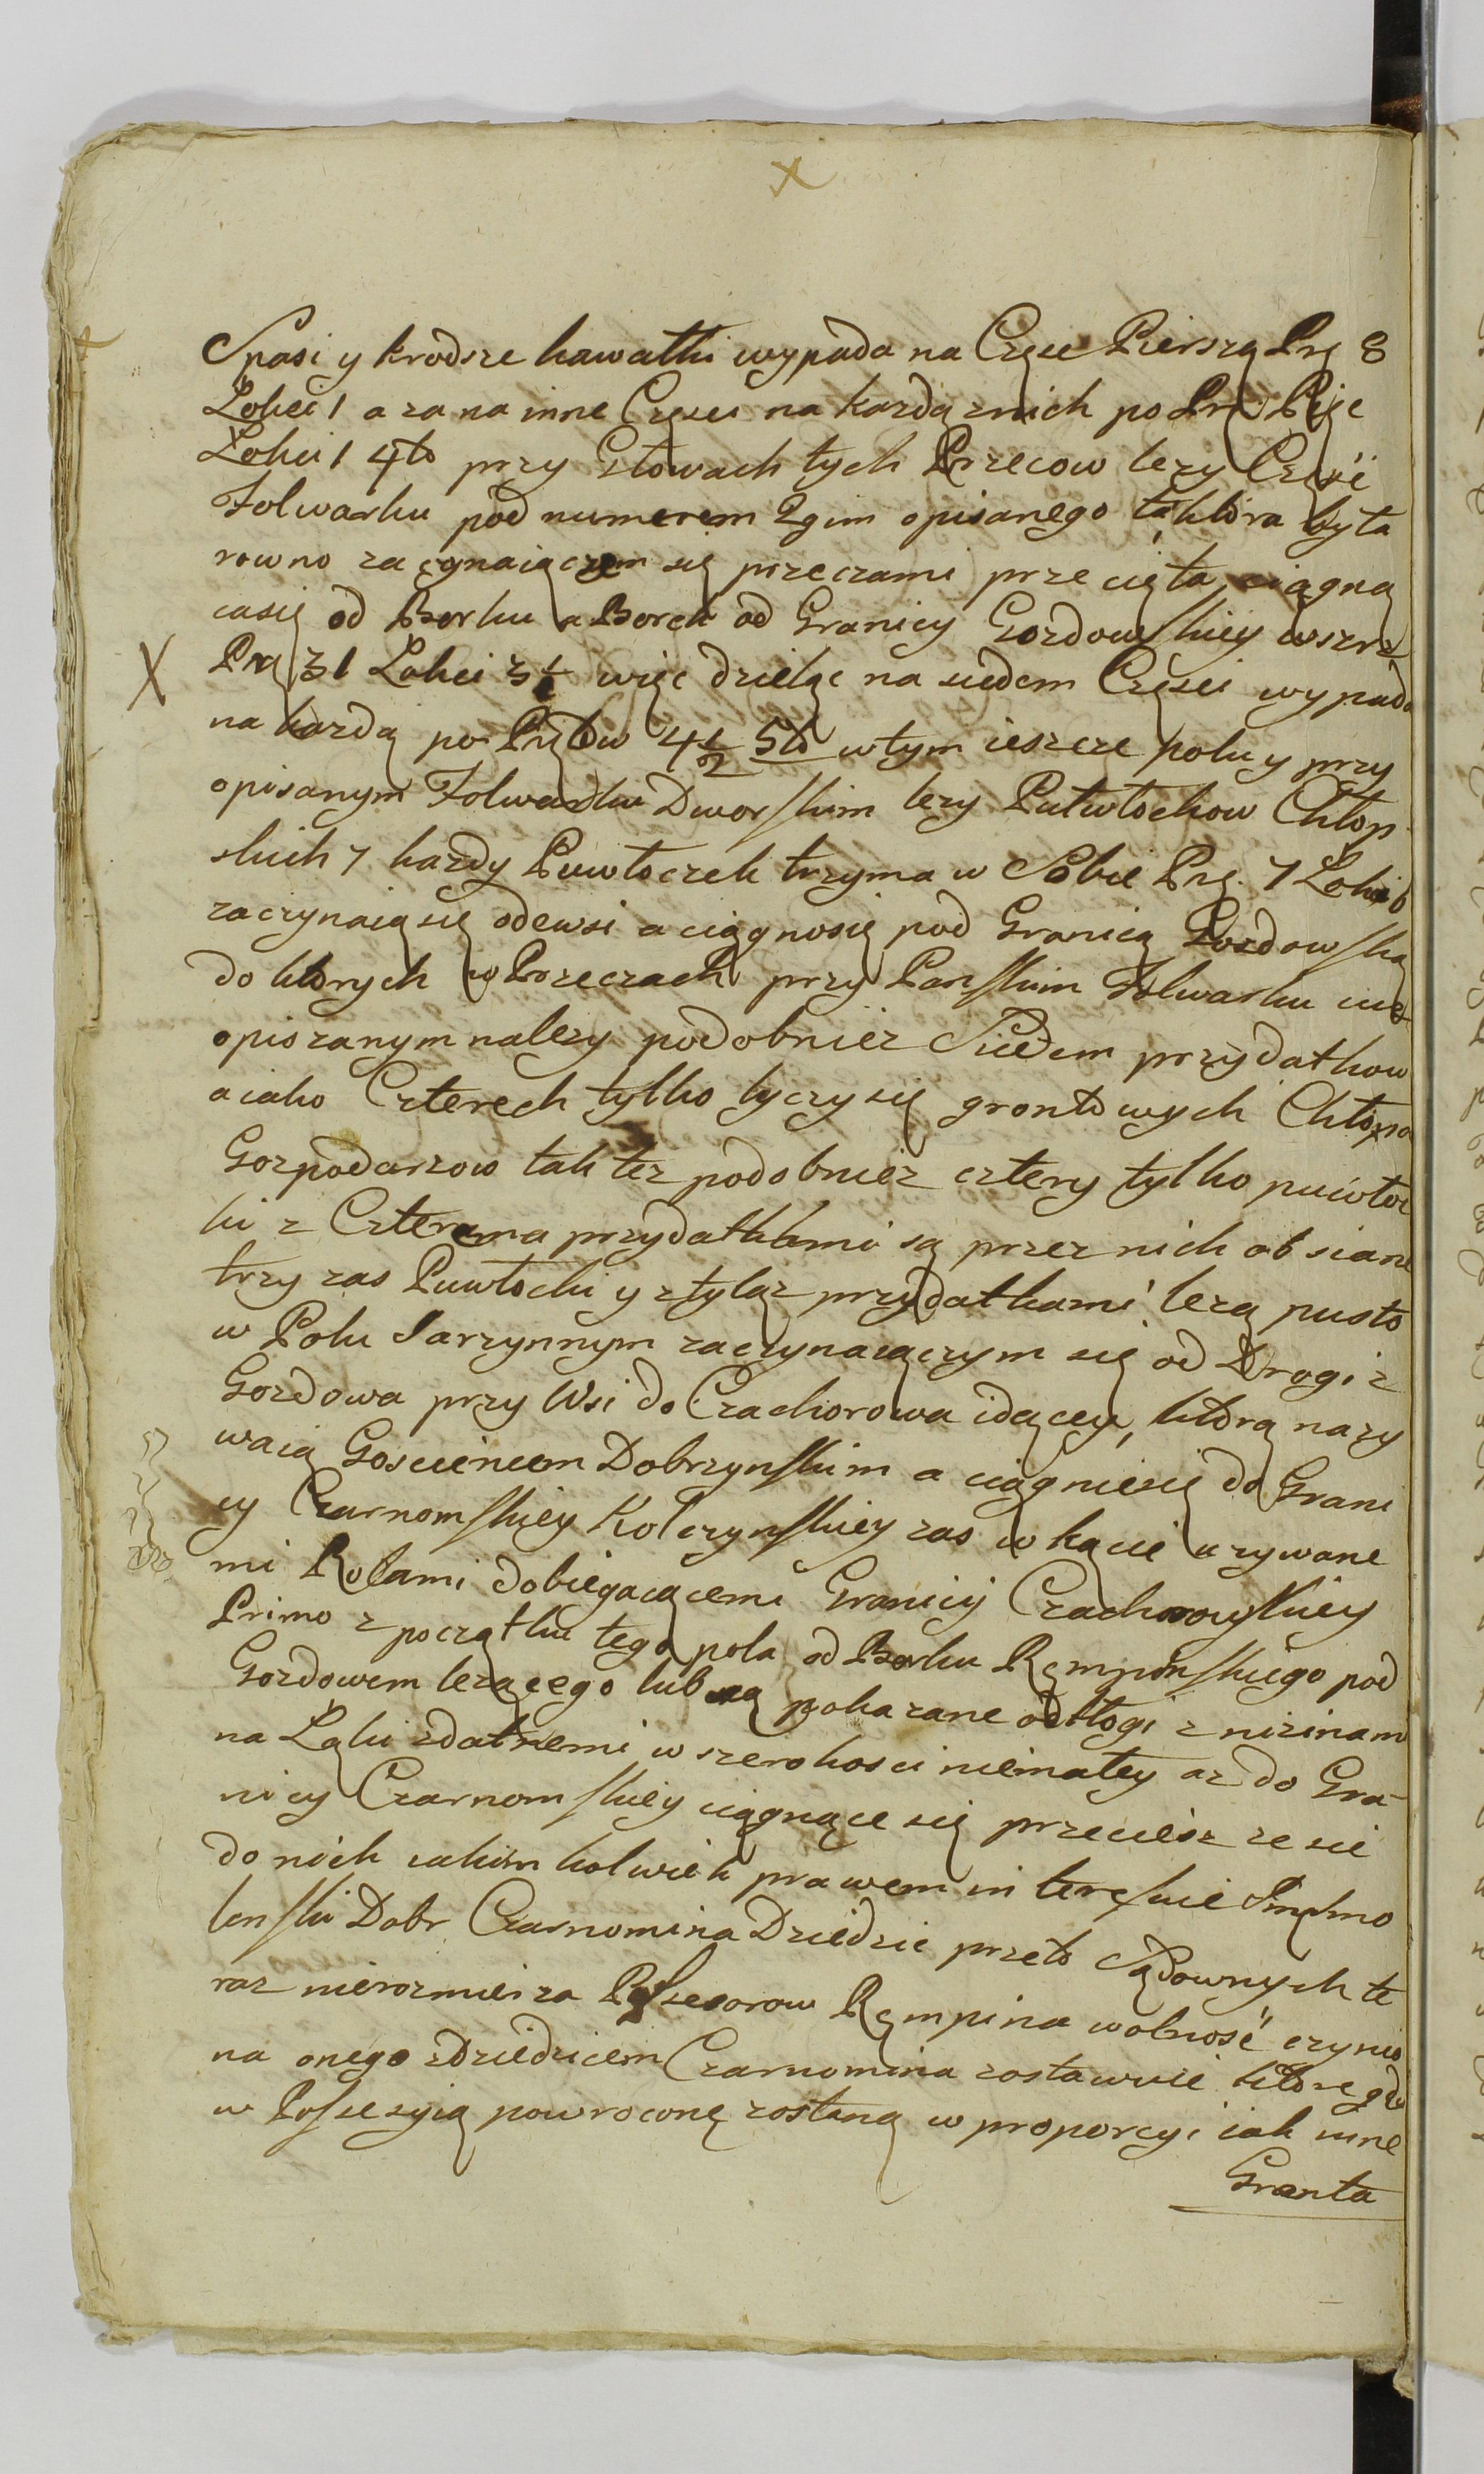 Spasi y krodsze kawałki wypada na Częsc Pierszą Prę 8
Łokci 1 a za na inne Częsci na kazdą znich po Prę: Pięc
Łokci 1 4to przy Głowach tych Przecow lezy Częsć
Folwarku pod numerem 2gim opisanego ta ktora byta
rowno zacynaiączem się przeczami przecięta, ciągną
casię od Borku a Borek od Granicy Gozdowskiey wszrz
Prę 31 Łokci 3½ więc dzieląc na siedem Częsci wypada
na kazdą po Prętow 4½ 5to w tym ieszcze polu y przy
opisanym Folwarku Dworskim lezy Pułwłockow Chłop
skich 7 kazdy Puwłoczek trzyma w Sobie Prę. 7 Łokci 6
zaczynaią się odewsi a ciągnosię pod Granicą Gozdowską
do ktorych w Przeczach przy Panskim Folwarku iuż
opiszanym nalezy podobniez Siedem przydatkow
a iako Czterech tylko tyczy się grontowych Chłopo
Gozpodarzow tak tez podobniez cztery tylko puwłoc
ki z Czterema przydatkami są przez nich obsiane
trzy zas Puwłocki y ztyląz przydatkami lezą pusto
w Polu Jarzynnym zaczynaiączym się od Drogi z
Gozdowa przy Wsi do Czachorowa idącey, ktorą nazy
waią Gosciencem Dobrzynskim a ciągniesię do Grani
cy Czarnomskiey Kolczynskiey zas w kącie uzywane
mi Rolami dobiegaiącemi Granicy Czachorowskiey
Primo z początku tego pola od Borku Rempinskiego pod
Gozdowem lezącego lub są pokazane odłogi z nizinam
na Łąki zdatnemi w szerokosci niemałey az do Gra
nicy Czarnomskiey ciągnące się przeciesz ze się
do nich iakim kolwiek prawem interesuie Smo
lenski Dobr Czarnomina Dziedzic przeto Sądownych te
raz nierozmierza Possesorow Rempina wolność czynie
na onego zDziedzicem Czarnomina zostawuie ktore gdy
w Possesyią powrocone zostaną w proporcyi iak inne
Gronta